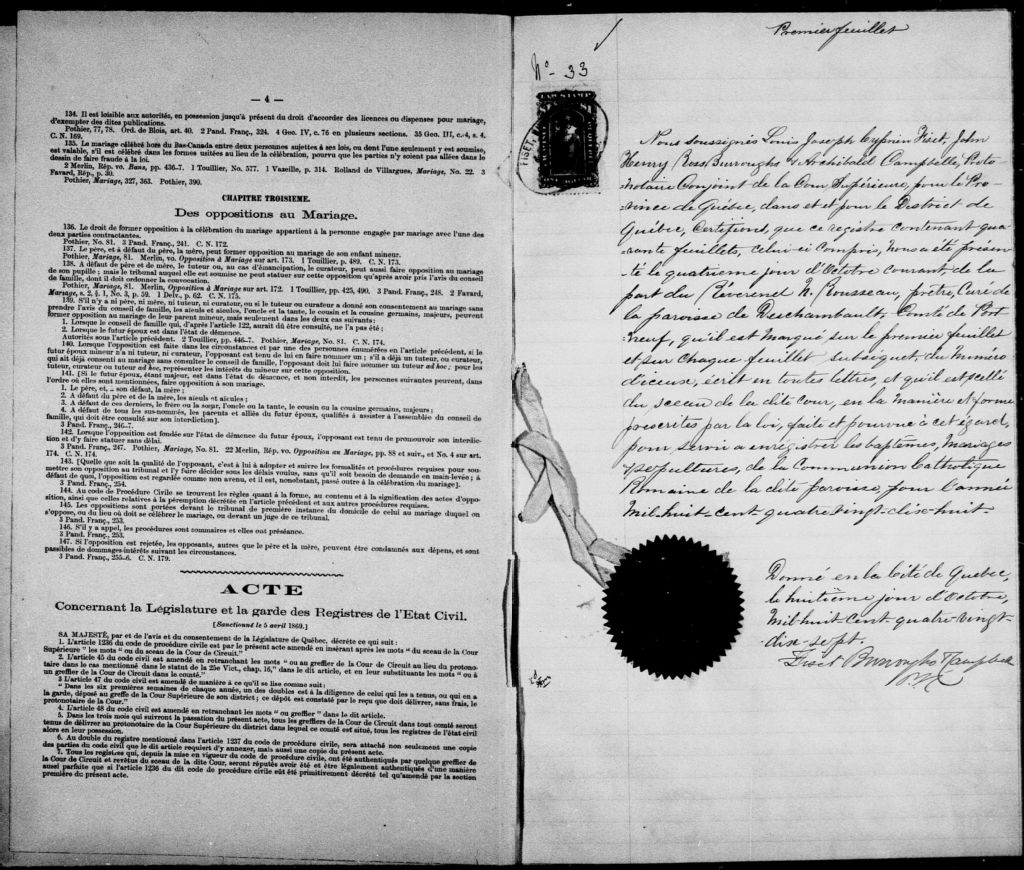 — 4 —
134. Il est loisible aux autorités, en possession jusqu'à présent du droit d'accorder des licences ou dispenses pour mariage,
d'exempter des dites publications.
Pothier, 77, 78. Ord. de Blois, art. 40. 2 Pand. Franç., 324. 4 Geo. IV, c. 76 en plusieurs sections. 35 Geo. III, c. 4, s. 4.
C. N. 169.
135. Le mariage célébré hors du Bas-Canada entre deux personnes sujettes à ses lois, ou dont l'une seulement y est soumise,
est valable, s'il est célébré dans les formes usitées au lieu de la célébration, pourvu que les parties n'y soient pas allées dans le
dessin de faire fraude à la loi.
2 Merlin, Rép. vo. Bans, pp. 436-7. 1 Touillier, No. 577. 1 Vazeille, p. 314. Rolland de Villargues, Mariage, No. 22. 3
Favard, Rép., p. 30.
Pothier, Mariage, 327, 363. Pothier, 390.
CHAPITRE TROISIEME.
Des oppositions au Mariage.
136. Le droit de former opposition à la célébration du mariage appartient à la personne engagée par mariage avec l'une des
deux parties contractantes.
Pothier, No. 81. 3 Pand. Franç., 241. C. N. 172.
137. Le père, et à défaut du père, la mère, peut former opposition au mariage de son enfant mineur.
Pothier, Mariage, 81. Merlin, vo. Opposition à Mariage sur art. 173. 1 Touillier, p. 489. C. N. 173.
138. A défaut de père et de mère, le tuteur ou, au cas d'émancipation, le curateur, peut aussi faire opposition au mariage
de son pupille; mais le tribunal auquel elle est soumise ne peut statuer sur cette opposition qu'après avoir pris l'avis du conseil
de famille, dont il doit ordonner la convocation.
Pothier, Mariage, 81. Merlin, Opposition à Mariage sur art. 172. 1 Touillier, pp. 425, 490. 3 Pand. Franç., 248. 2 Favard,
Mariage, s. 2, § 1, No. 3, p. 59. 1 Delv., p. 62. C. N. 175.
139. S'il n'y a ni père, ni mère, ni tuteur, ni curateur, ou si le tuteur ou curateur a donné son consentement au mariage sans
prendre l'avis du conseil de famille, les aïeuls et aïeules, l'oncle et la tante, le cousin et la cousine germains, majeurs, peuvent
former opposition au mariage de leur parent mineur, mais seulement dans les deux cas suivants:
1. Lorsque le conseil de famille qui, d'après l'article 122, aurait dû être consulté, ne l'a pas été;
2. Lorsque le futur époux est dans l'état de démence.
Autorités sous l'article précédent. 2 Touillier, pp. 446-7. Pothier, Mariage, No. 81. C. N. 174.
140. Lorsque l'opposition est faite dans les circonstances et par une des personnes énumérées en l'article précédent, si le
futur époux mineur n'a ni tuteur, ni curateur, l'opposant est tenu de lui en faire nommer un; s'il a déjà un tuteur, ou curateur,
qui ait déjà consenti au mariage sans consulter le conseil de famille, l'opposant doit lui faire nommer un tuteur ad hoc; pour les
tuteur, curateur ou tuteur ad hoc, représenter les intérêts du mineur sur cette opposition.
141. [Si le futur époux, étant majeur, est dans l'état de démence, et non interdit, les personnes suivantes peuvent, dans
l'ordre où elles sont mentionnées, faire opposition à son mariage.
1. Le père, et, à son défaut, la mère;
2. A défaut du père et de la mère, les aïeuls et aïeules;
3. A défaut de ces derniers, le frère ou la sœur, l'oncle ou la tante, le cousin ou la cousine germains, majeurs;
4. A défaut de tous les sus-nommés, les parents et alliés du futur époux, qualifiés à assister à l'assemblée du conseil de
famille, qui doit être consulté sur son interdiction].
3 Pand. Franç., 246-7.
142. Lorsque l'opposition est fondée sur l'état de démence du futur époux, l'opposant est tenu de promouvoir son interdic-
tion et d'y faire statuer sans délai.
3 Pand. Franç., 247. Pothier, Mariage, No. 81. 22 Merlin, Rép. vo. Opposition au Mariage, pp. 88 et suiv., et No. 4 sur art.
174. C. N. 174.
143. [Quelle que soit la qualité de l'opposant, c'est à lui à adopter et suivre les formalités et procédures requises pour sou-
mettre son opposition au tribunal et l'y faire décider sous les délais voulus, sans qu'il soit besoin de demande en main-levée; à
défaut de quoi, l'opposition est regardée comme non avenu, et il est, nonobstant, passé outre à la célébration du mariage].
3 Pand. Franç., 254.
144. Au code de Procédure Civile se trouvent les règles quant à la forme, au contenu et à la signification des actes d'oppo-
sition, ainsi que celles relatives à la péremption décrétée en l'article précédent et aux autres procédures requises.
145. Les oppositions sont portées devant le tribunal de première instance du domicile de celui au mariage duquel on
s'oppose, ou du lieu où doit se célébrer le mariage, ou devant un juge de ce tribunal.
3 Pand. Franç., 253.
146. S'il y a appel, les procédures sont sommaires et elles ont préséance.
3 Pand. Franç., 253.
147. Si l'opposition est rejetée, les opposants, autres que le père et la mère, peuvent être condamnés aux dépens, et sont
passibles de dommages-intérêts suivant les circonstances.
3 Pand. Franç., 255-6. C. N. 179.
ACTE
Concernant la Législature et la garde des Registres de l'Etat Civil.
[Sanctionné le 5 avril 1869.]
SA MAJESTÉ, par et de l'avis et du consentement de la Législature de Québec, décrète ce qui suit:
1. L'article 1236 du code de procédure civile est par le présent acte amendé en insérant après les mots "du sceau de la Cour
Supérieure" les mots "ou du sceau de la Cour de Circuit."
2. L'article 45 du code civil est amendé en retranchant les mots "ou au greffier de la Cour de Circuit au lieu du protono-
taire dans le cas mentionné dans le statut de la 25e Vict., chap. 16," dans le dit article, et en leur substituants les mots "ou à
un greffier de la Cour de Circuit dans le comté."
3 L'article 47 du code civil est amendé de manière à ce qu'il se lise comme suit:
"Dans les six premières semaines de chaque année, un des doubles est à la diligence de celui qui les a tenus, ou qui en a
la garde, déposé au greffe de la Cour Supérieure de son district; ce dépôt est constaté par le reçu que doit délivrer, sans frais, le
protonotaire de la Cour."
4. L'article 48 du code civil est amendé en retranchant les mots "ou greffier" dans le dit article.
5. Dans les trois mois qui suivront la passation du présent acte, tous les greffiers de la Cour de Circuit dans tout comté seront
tenus de délivrer au protonotaire de la Cour Supérieure du district dans lequel ce comté est situé, tous les registres de l'état civil
alors en leur possession.
6. Au double du registre mentionné dans l'article 1237 du code de procédure civile, sera attaché non seulement une copie
des parties du code civil que le dit article requiert d'y annexer, mais aussi une copie du présent acte.
7. Tous les registres qui, depuis la mise en vigueur du code de procédure civile, ont été authentiqués par quelque greffier de
la Cour de Circuit et revêtus du sceau de la dite Cour, seront réputés avoir été et être légalement authentiqués d'une manière
aussi parfaite que si l'article 1236 du dit code de procédure civile eût été primitivement décrété tel qu'amendé par la section
première du présent acte.
Premier feuillet
No - 33
LAW STAMP
FISET,
Nous soussignés Louis Joseph Cyprien Fiset, John
Henry Ross Burroughs & Archibald Campbell, Proto-
-notaire Conjoint de la Cour Supérieure, pour la Pro-
-vince de Québec, dans et pour le District de
Québec, Certifions, que ce registre contenant qua-
-rante feuillets, celui-ci Compris, nous a été présen-
-té le quatrieme jour d'Octobre courant, de la
part du Révérend N. Rousseau, prêtre, Curé de
la paroisse de Deschambault, Comté de Port
neuf, qu'il est marqué sur le premier feuillet
et sur chaque feuillet subséquent, du numéro
d'iceux, écrit en toutes lettres, et qu'il est scellé
du sceau de la dite Cour, en la manière et forme
prescrites par la loi, faite et pourvue à cet égard,
pour servir a enrégistrer les baptêmes, mariages
& sepultures, de la Communion Catholique
Romaine de la dite paroisse, pour l'année
mil-huit-cent quatre vingt-dix-huit-
Donné en la Cité de Quebec,
le huitieme jour d'Octobre,
Mil huit cent quatre vingt-
-dix-sept.
Fiset Burroughs Campbell